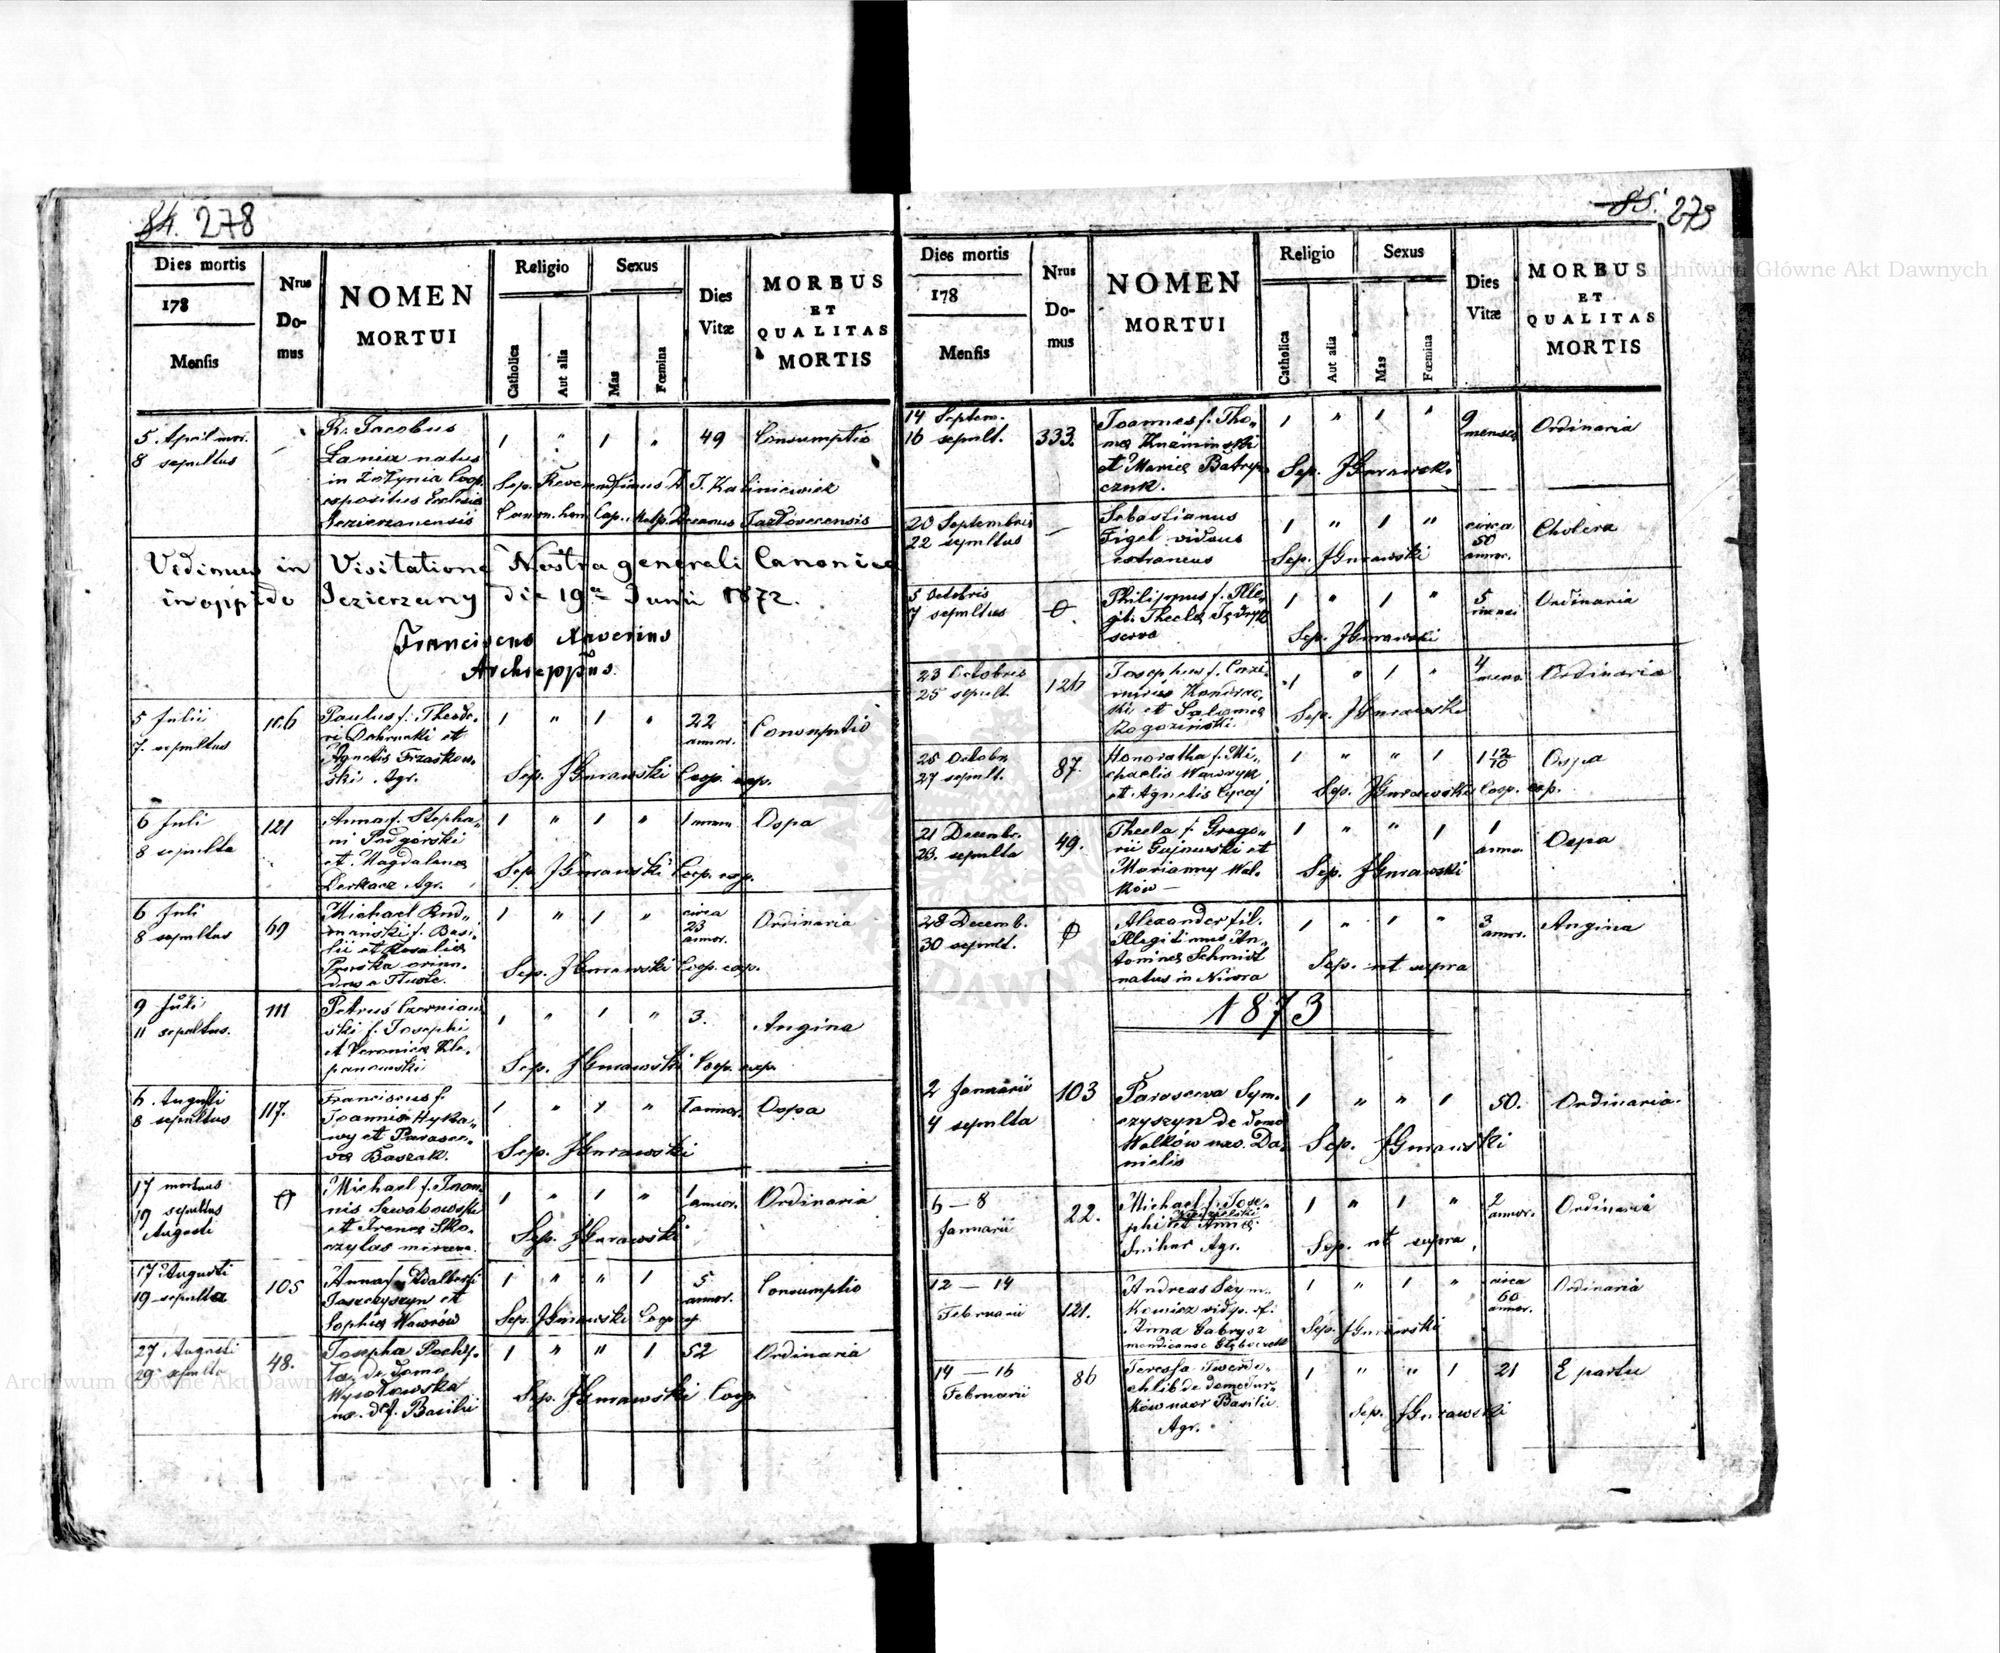 84. 278
Dies mortis
178
Mensis
Nrus
Do-
mus
NOMEN
MORTUI
Religio
Catholica
Aut alia
Sexus
Mas
Fœmina
Dies
Vitæ
MORBUS
ET
QUALITAS
MORTIS
5 April mor.
8 sepultus
R. Jacobus
Lania natus
in Żołynia Coop.
expositus Ecclesiae
Jezierzanensis
1 " 1 " 49 Consumptio
Sep. Reverendissimus D. J. Kaliniewicz
Canon. hon. Cap. Decanus Jazdovecensis
Vidimus in Visitatione Nostra generali Canonica
in oppido Jezierzany die 19a Junii 1872.
Franciscus Xaverius
Archieppus.
5 Julii
7 sepultus
106
Paulus f. Theodo-
ri Dobrucki et
Agnetis Trzaskow-
ski. Agr.
1 " 1 " 22 annor. Consumptio
Sep. JGurawski Coop. exp.
6 Juli
8 sepulta
121
Anna f. Stepha-
ni Podgórski
et Magdalena
Derkacz Agr.
1 " 1 " 1 Ospa
Sep. JGurawski Coop. exp.
6 Juli
8 sepultus
69
Michael Rud-
manski f. Basi-
lii et Rosalia
Pruska oriun-
dus a Tłuste.
1 " 1 " circa 23 annor. Ordinaria
Sep. JGurawski Coop. exp.
9 Juli
11 sepultus.
111
Petrus Czerniaw-
ski f. Josephi
et Veronica Kle-
panowski
1 " 1 " 3. Angina
Sep. JGurawski Coop. exp.
6 Augusti
8 sepultus
117.
Franciscus f.
Joannis Hyka-
wy et Parasce-
va Baszak.
1 " 1 " 1 annor. Ospa
Sep. JGurawski
17 mortuus
19 sepultus
Augusti
0
Michael f. Joan-
nis Szwabowski
et Irena Sko-
czylas
1 " 1 " 1 annor. Ordinaria
Sep. JGurawski
17 Augusti
19 sepulta
105
Anna f. Adalberti
Jaszczyszyn et
Sophia Wawrów
1 " " 1 5 annor. Consumptio
Sep. JGurawski Coop.
27 Augusti
29 sepulta
48.
Josepha Pochy-
ła de domo
Wysokowska
ux. def. Basilii
1 " " 1 52 Ordinaria
Sep. JGurawski Coop.
85. 279
Dies mortis
178
Mensis
Nrus
Do-
mus
NOMEN
MORTUI
Religio
Catholica
Aut alia
Sexus
Mas
Fœmina
Dies
Vitæ
MORBUS
ET
QUALITAS
MORTIS
14 Septem.
16 sepult.
333.
Joannes f. Tho-
ma Knaminski
et Maria Batryn-
czuk.
1 " 1 " 9 menses Ordinaria
Sep. JGurawski
20 Septembris
22 sepultus
—
Sebastianus
Figel viduus
extraneus
1 " 1 " circa 50 annor. Cholera
Sep. JGurawski
5 Octobris
7 sepultus
0.
Philippus f. Ille-
git. Thecla
serva
1 " 1 " 5 Ordinaria
Sep. JGurawski
23 Octobris
25 sepult.
126
Josephus f. Cazi-
mirus Kondrac-
ki et Salomea
Rogoziński.
1 " 1 " 4 mens. Ordinaria
Sep. JGurawski
25 Octobr.
27 sepult.
87.
Honoratha f. Mi-
chaelis Wawryk
et Agnetis Cycaj
1 " " 1 1 Ospa
Sep. JGurawski Coop. exp.
21 Decembr.
23. sepulta
49.
Thecla f. Grego-
rii Gujewski et
Marianny Wal-
ków —
1 " " 1 1 anno. Ospa
Sep. JGurawski
28 Decemb.
30 sepult.
0
Alexander fil.
Illegitimus An-
tonina Schmidt
natus in Niwra
1 " 1 " 3 annor. Angina
Sep. ut supra
1873
2 Januarii
4 sepulta
103
Parasceva Sym-
czyszyn de domo
Walków uxo. Da-
nielis
1 " " 1 50. Ordinaria.
Sep. JGurawski
6 — 8
Januarii
22.
Michael f. Jose-
phi et Anna
Snihur Agr.
1 " 1 " 2 annor. Ordinaria
Sep. ut supra,
12 — 14
Februarii
121.
Andreas Szym-
kowicz vidg. of.
Anna Gabrysz
mendicans
1 " 1 " circa 60 annor. Ordinaria
Sep. JGurawski
14 — 16
Februarii
86
Teressa Twerdo-
chlib de domo Jur-
ków uxor Basilii
Agr.
1 " " 1 21 E partu
Sep. JGurawski
Archiwum Główne Akt Dawnych
Archiwum Główne Akt Dawnych